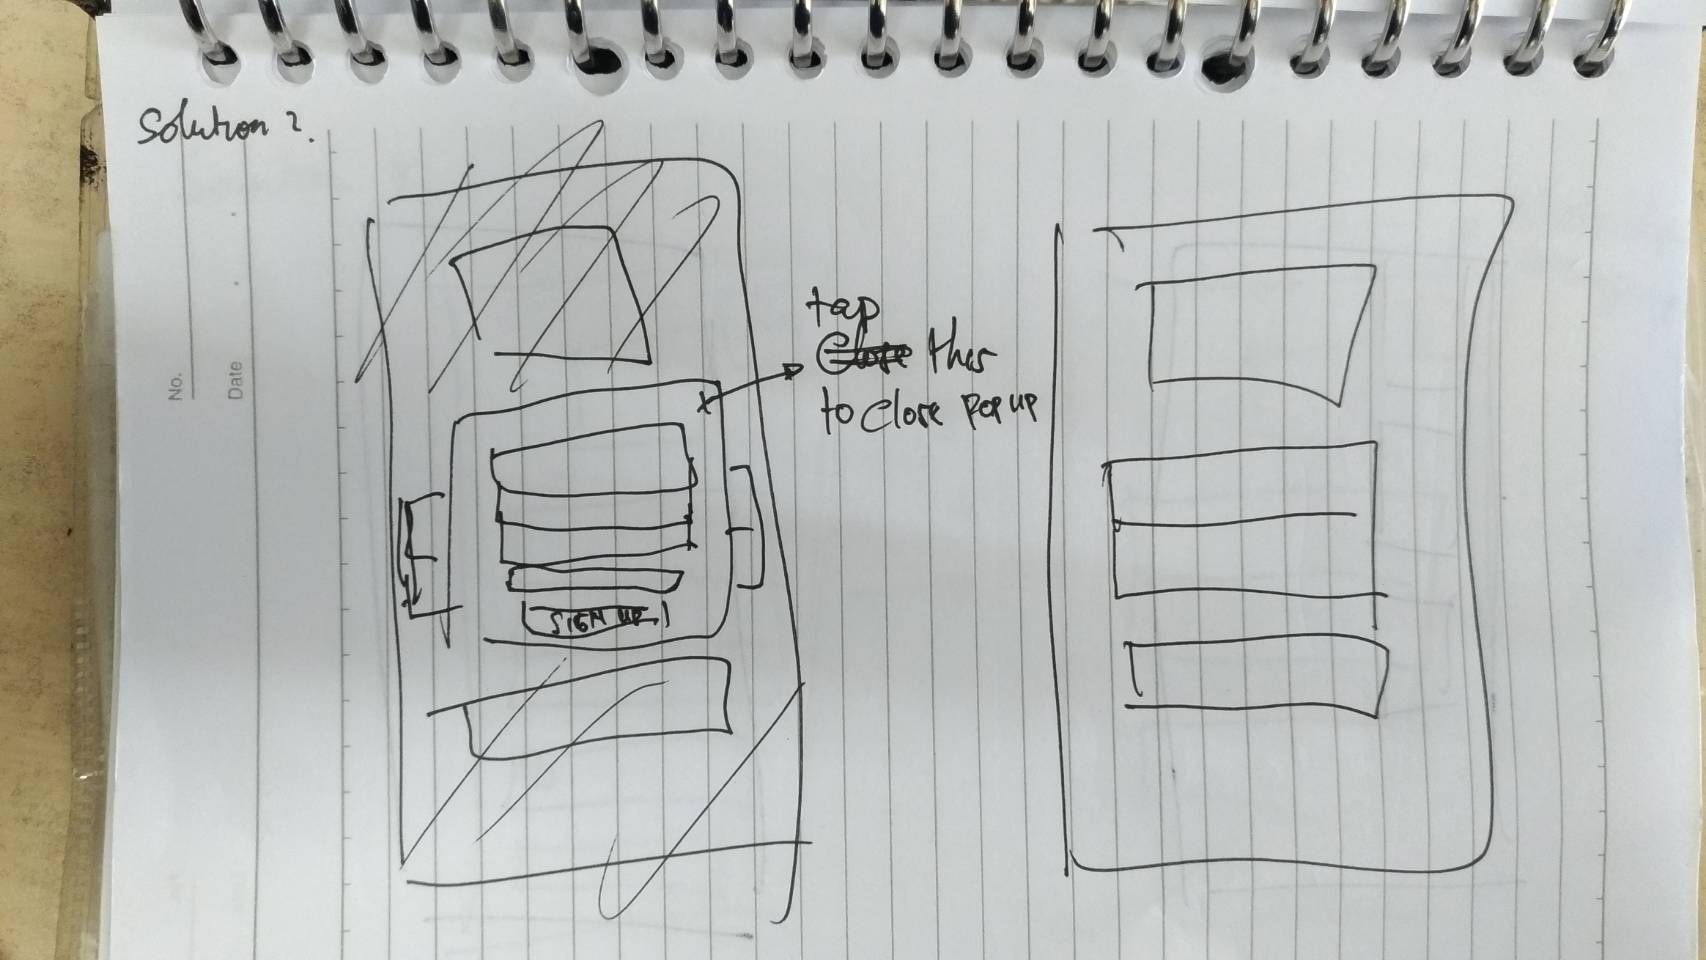 Solution 2.
No.
Date
tap
Close this
to close pop up
SIGN UP